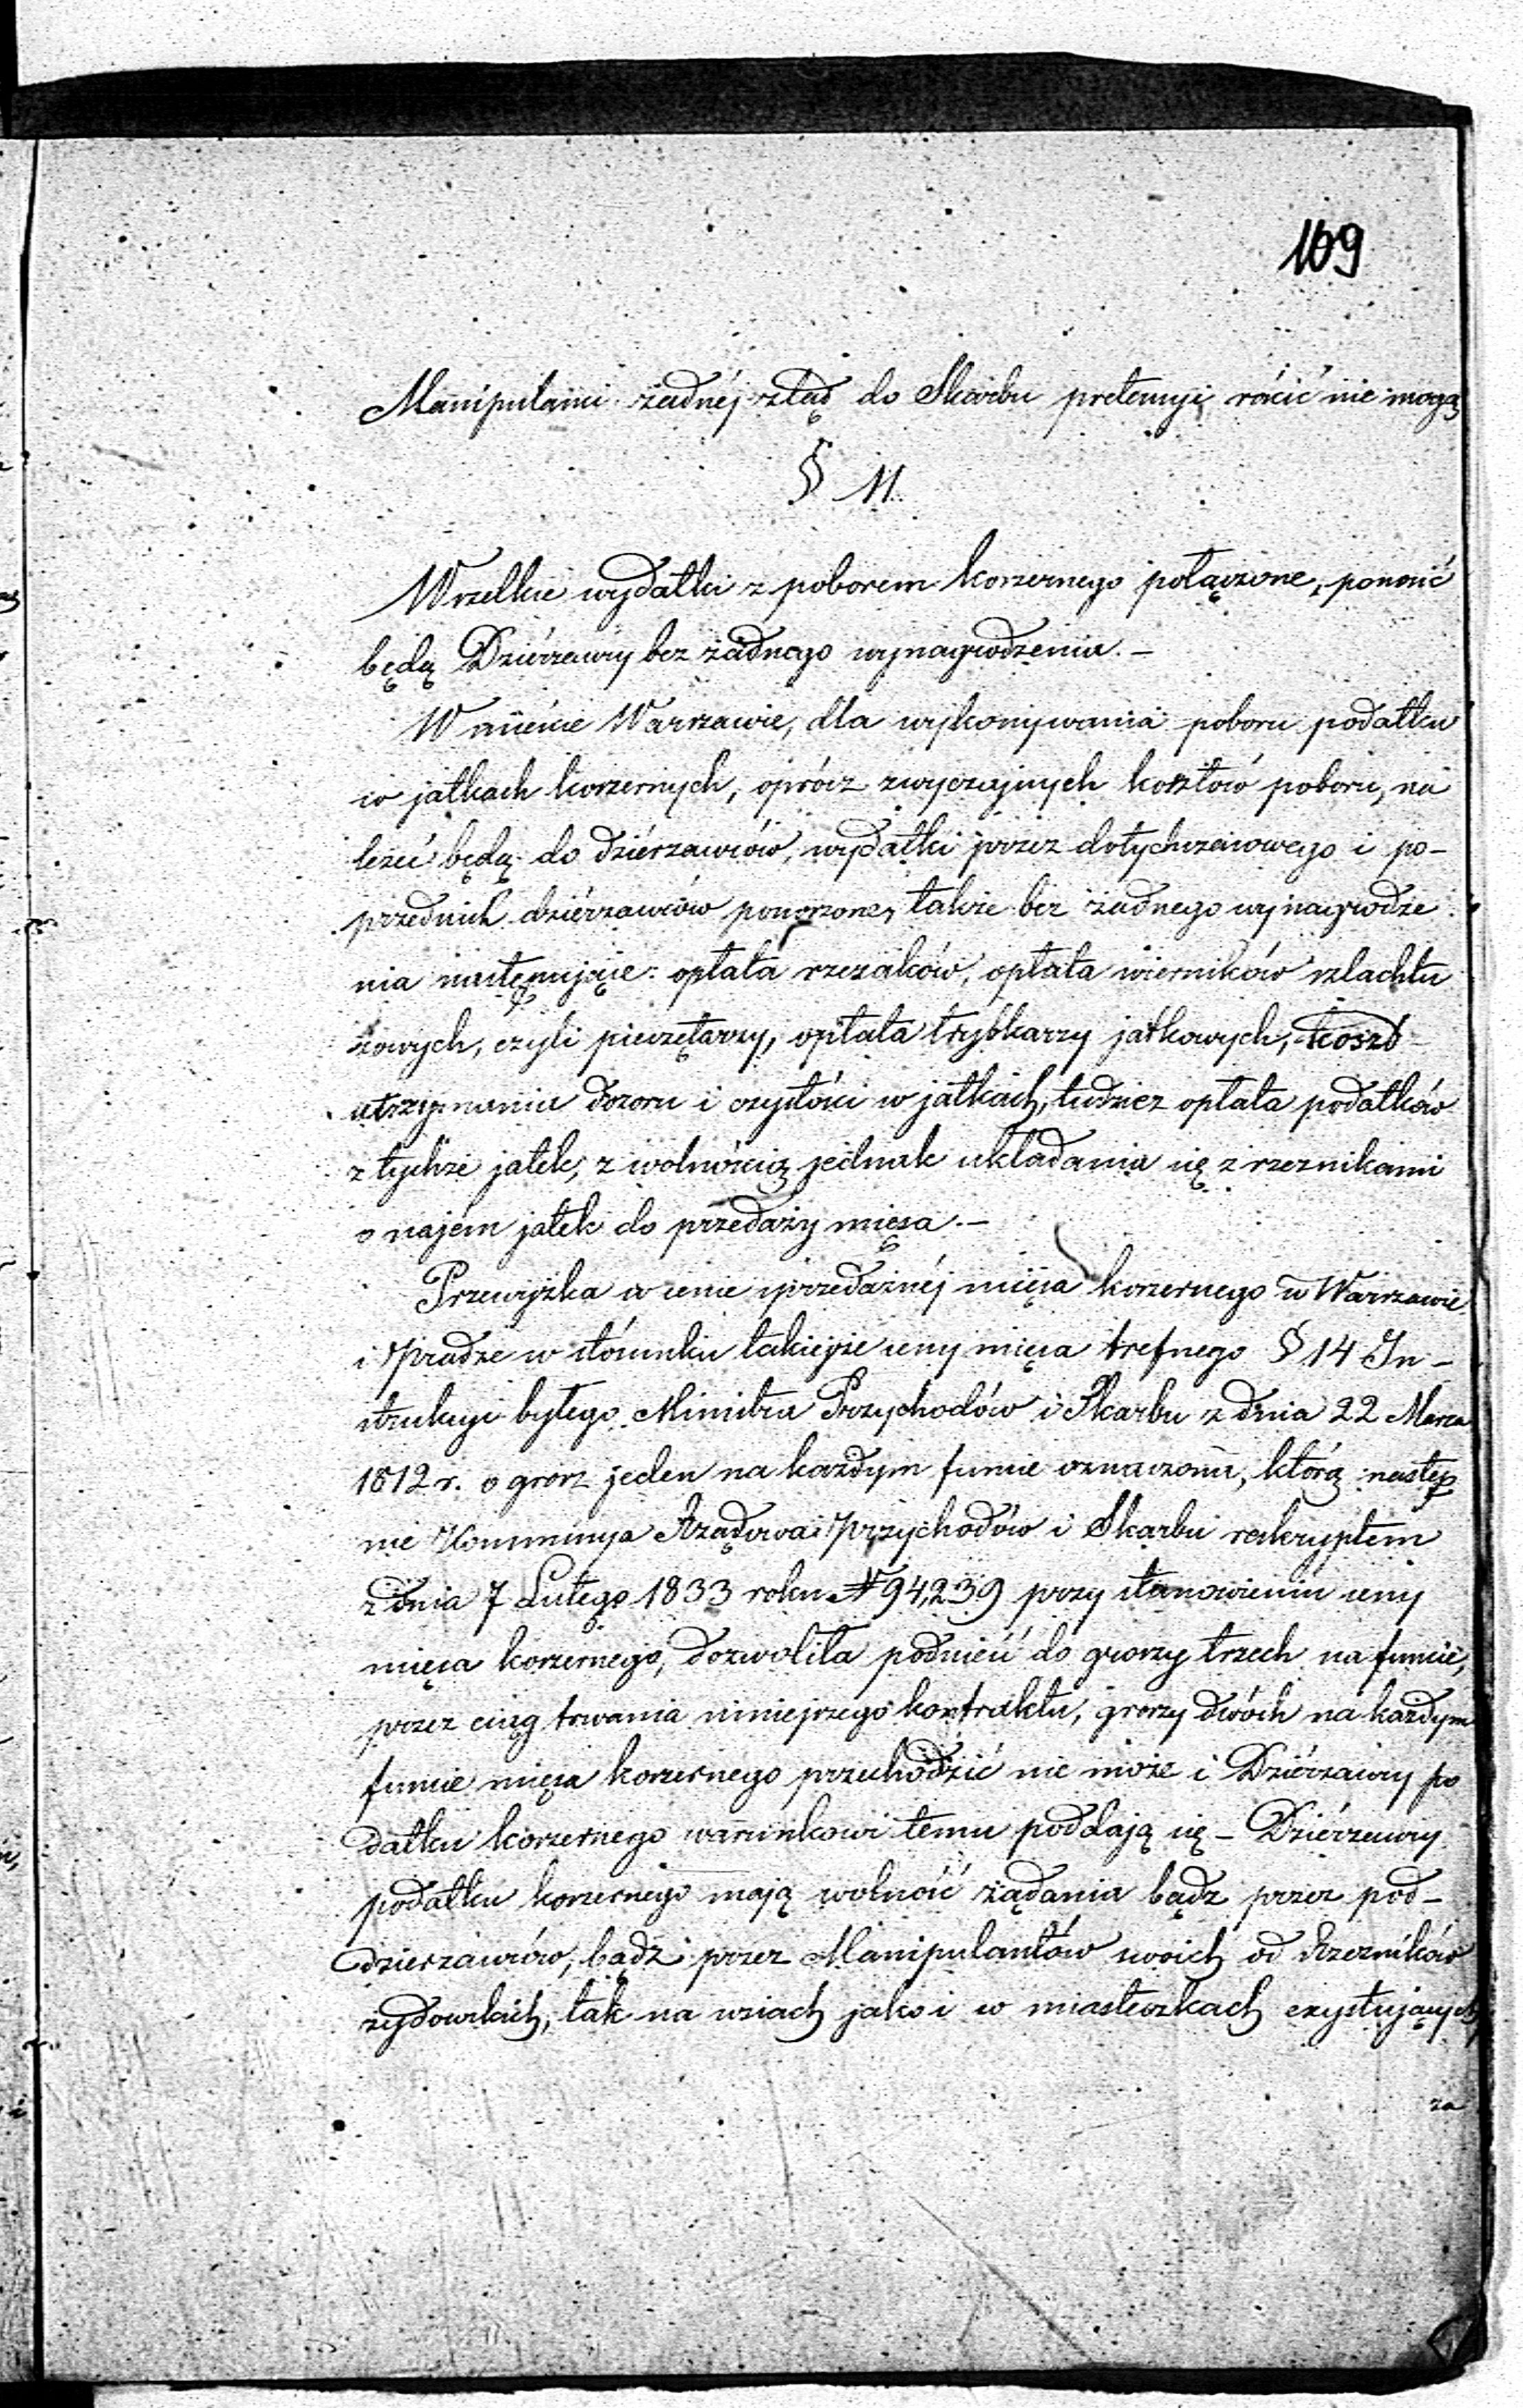 109
Manipulanci żadnéj ztąd do Skarbu pretensyi rościć nie mogą
§ 11.
Wszelkie wydatki z poborem koszernego połączone, ponosić
będą Dziérzawcy bez żadnego wynagrodzenia. –
W mieście Warszawie, dla wykonywania poboru podatku
w jatkach koszernych, oprócz zwyczajnych kosztów poboru, na
leżeć będą do dziérzawców, wydatki przez dotychczasowego i po-
przednich dziérzawców ponoszone, także bez żadnego wynagrodze
nia następujące: opłata rzezaków, opłata wierników szlachtu
zowych, czyli pieczętarzy, opłata trybkarzy jatkowych, koszt
utrzymania dozoru i czystości w jatkach, tudzież opłata podatków
z tychże jatek, z wolnością jednak układania się z rzeznikami
o najem jatek do przedaży mięsa. –
Przewyżka w cenie sprzedażnéj mięsa koszernego w Warszawie
i Pradze w stósunku takiejże ceny mięsa trefnego § 14 In-
strukcyi byłego Ministra Przychodów i Skarbu z dnia 22 Marca
1812 r. o grosz jeden na każdym funcie oznaczona, którą następ
nie Kommissya Rządowa Przychodów i Skarbu reskryptem
z dnia 7 Lutego 1833 roku № 94,239 przy stanowieniu ceny
mięsa koszernego, dozwoliła podnieść do groszy trzech na funcie,
przez ciąg trwania niniejszego kontraktu, groszy dwóch na każdym
funcie mięsa koszernego przechodzić nie może i Dziérzawcy po
datku koszernego warunkowi temu poddają się – Dziérzawcy
podatku koszernego mają wolność żądania bądz przez pod-
dzierzawców, bądz przez Manipulantów swoich od Rzezników
żydowskich, tak na wsiach jako i w miasteczkach exystujących
za